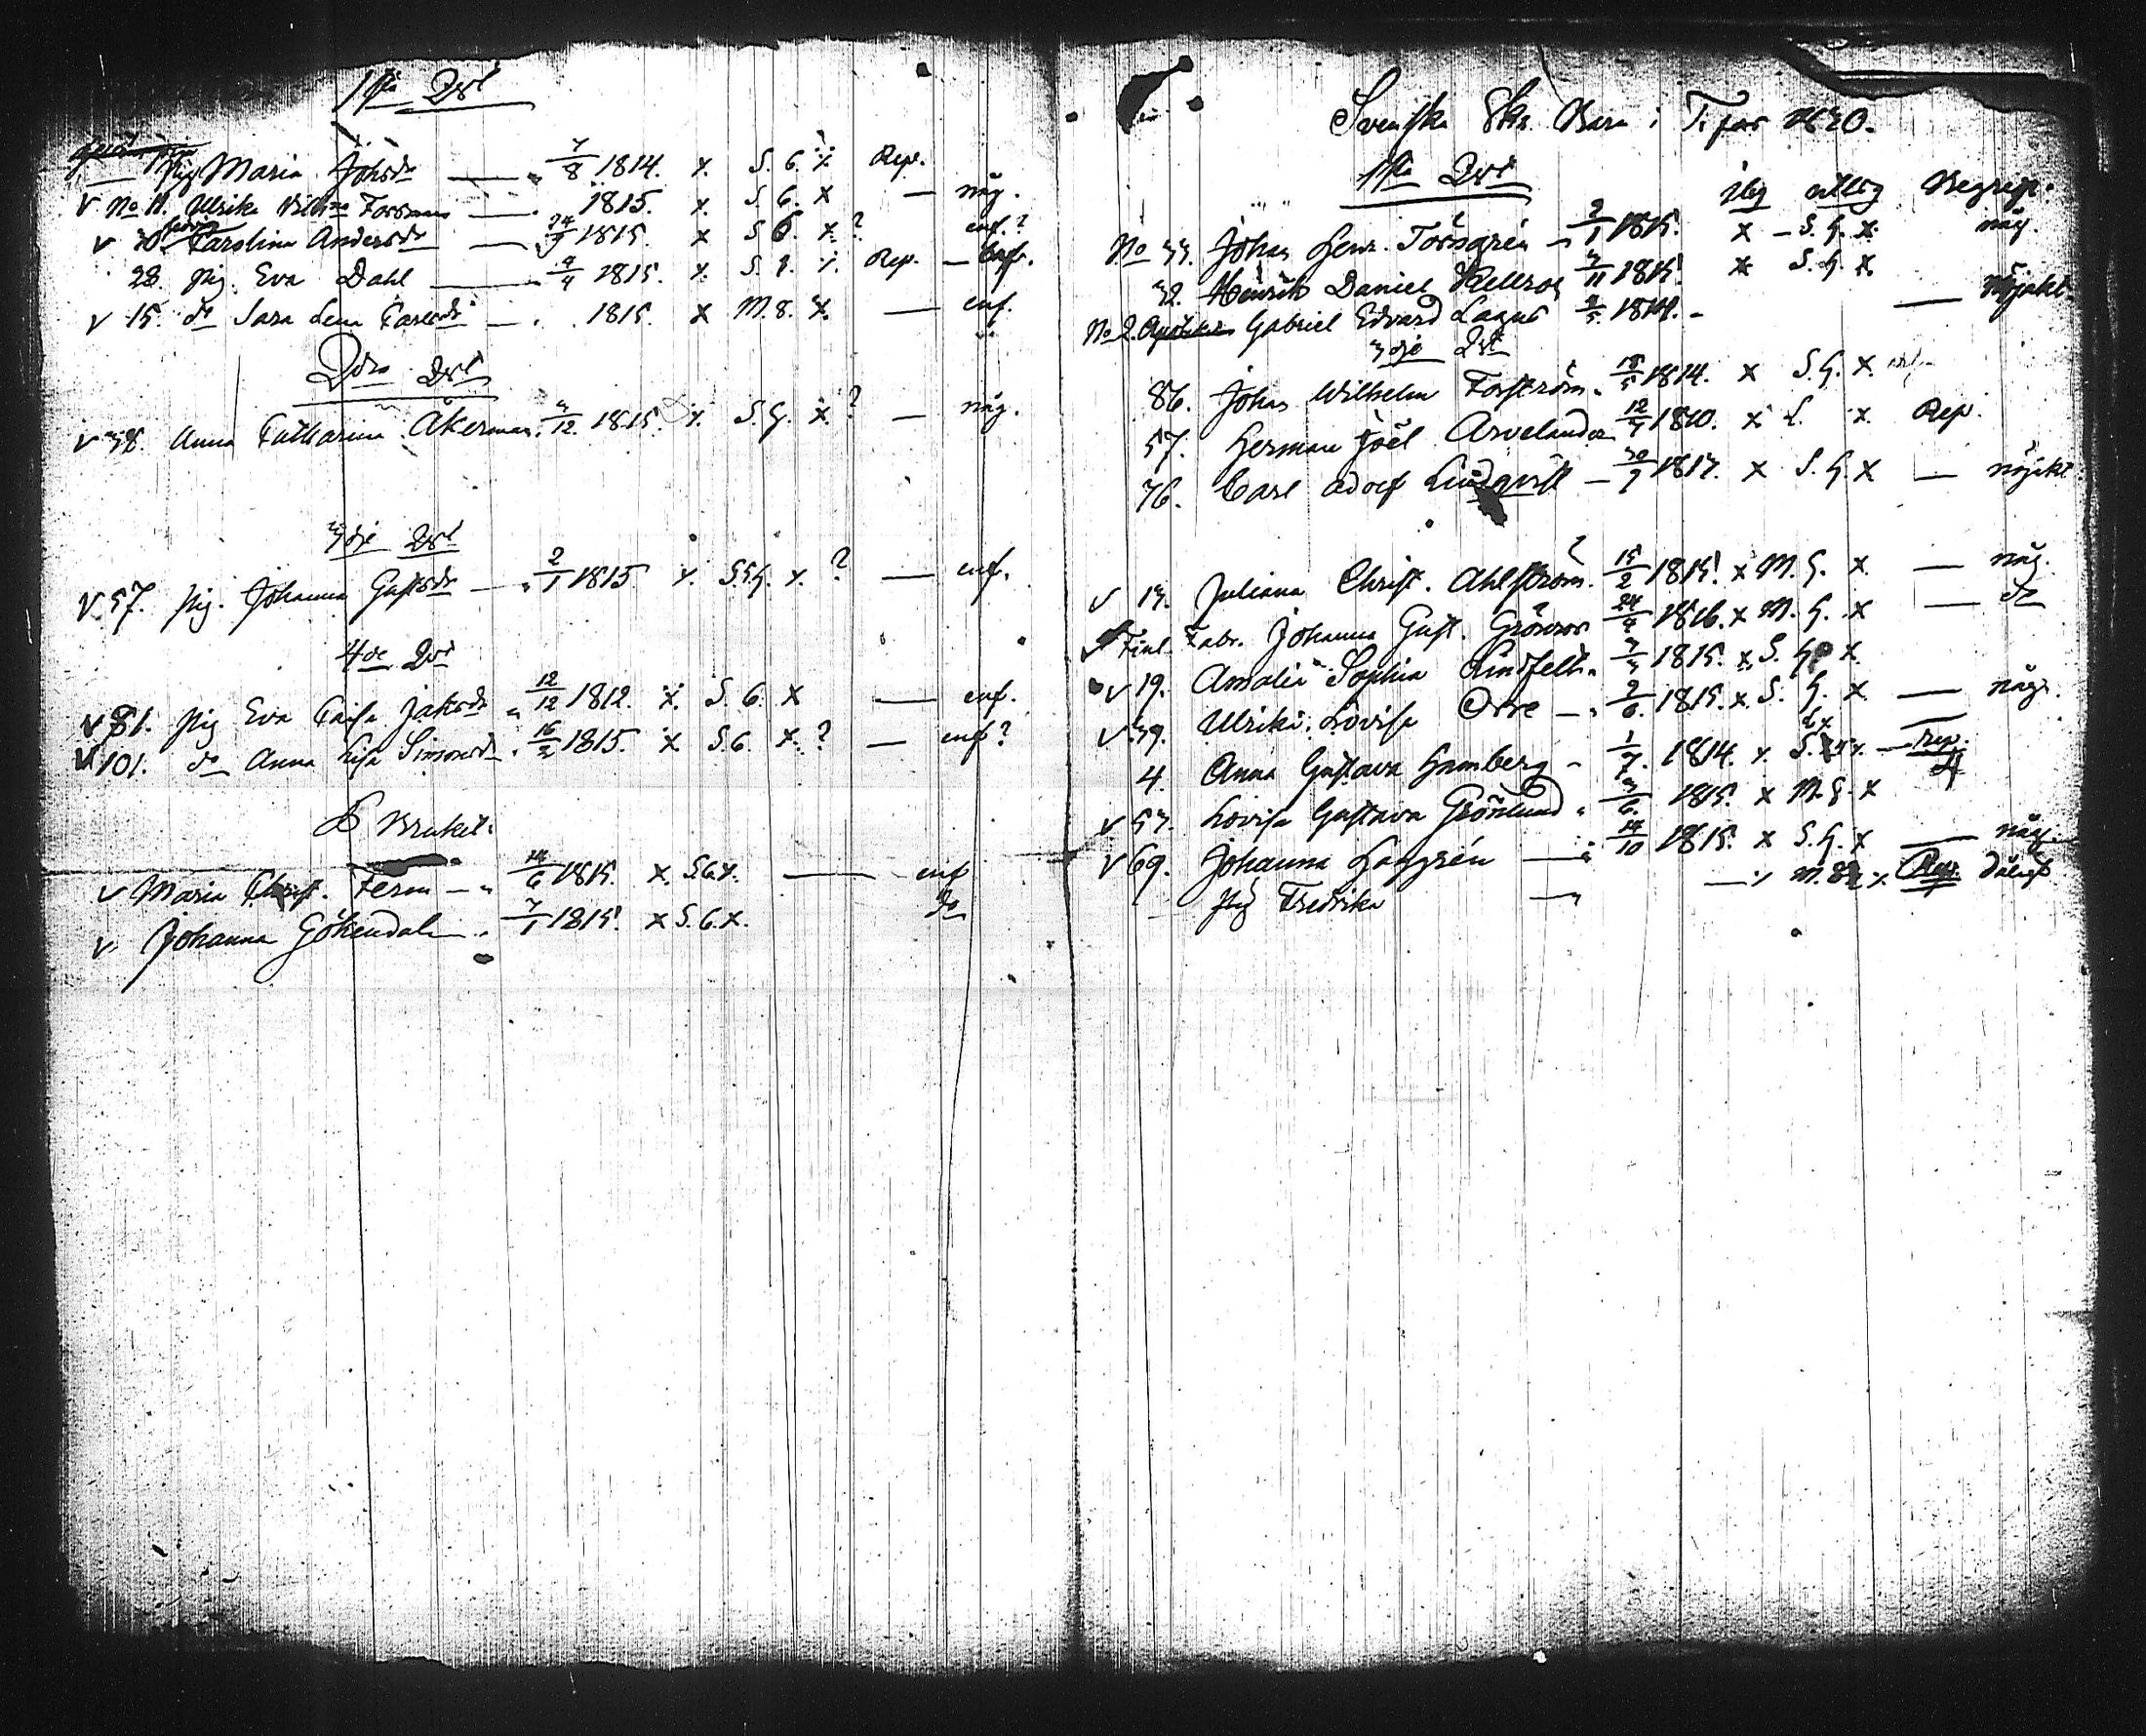 1sta Qvt
Pig Maria Johsdr — 7/8 1814. x. S. G. x Rep.
v No 11. Ulrika Forsman — 1815. x. S. G. x — någ.
v 30. Carolina Andersdr — 24/7 1815. x S G. x? enf.?
28. Pig. Eva Dahl — 4/4 1815. x. S. x. Rep. —
v 15. do Sara Lena — . 1815. x M. S. x. — enf.
2dra Qvt
v 38. Anna Catharina Åkerman. 3/12. 1815. x. S. G. x? — någ.
3dje Qvt
v. 57. Pig. Johanna Gustsdr — 2/1 1815 x. S. G. x. ? — enf.
4de Qvt
v 81. Pig Eva Caisa Jaksdr 12/12 1812. x. S. G. x — enf.
v 101. do Anna Lisa Simonsdr 16/2 1815. x S. G. x. ? — enf?
Bruket.
v Maria Christ. Ferm — 14/6 1815. x. S. G. x. — enf
v. Johanna Gökendal . 7/1 1815. x S. G. x. do
Svenska Skr. Barn i T. för 1830.
1sta Qvt
ibg utbg Begrep.
No 33. Johan Henr. Törngrén — 2/1 1815. x — S. G. x. någ.
32. Henrik Daniel 3/11 1815. x S. G. x
No 2. Gabriel Edvard Lagus 1814. — — Nöjakt.
3dje Qvt
86. Johan Wilhelm Forström. 18/5 1814. x S. G. x.
57. Herman Joël Arvelander 12/7 1810. x S. x. Rep.
76. Carl Adolf Lindqvist — 30/9 1813. x S. G. x — nöjakt.
v 13. Juliana Christ. Ahlström. 15/2 1815. x M. G. x. — någ.
Finl. Fabr. Johanna Gust. Grönroos 24/4 1816. x M. G. x — do
v 19. Amalia Sophia 3/3 1815. x S. G. x.
v 39. Ulrika Lovisa Orre — 9/6. 1815. x. S. G. x. — någ.
4. Anna Gustava Hamberg — 1/7. 1814. x. S. x. — rep.
v 53. Lovisa Gustava Grönlund . 3/6. 1815. x M. G. x
v 69. Johanna Laggrén — 14/10 1815. x S. G. x — någ.
Pig Fredrika — — x M. x Rep. dåligt